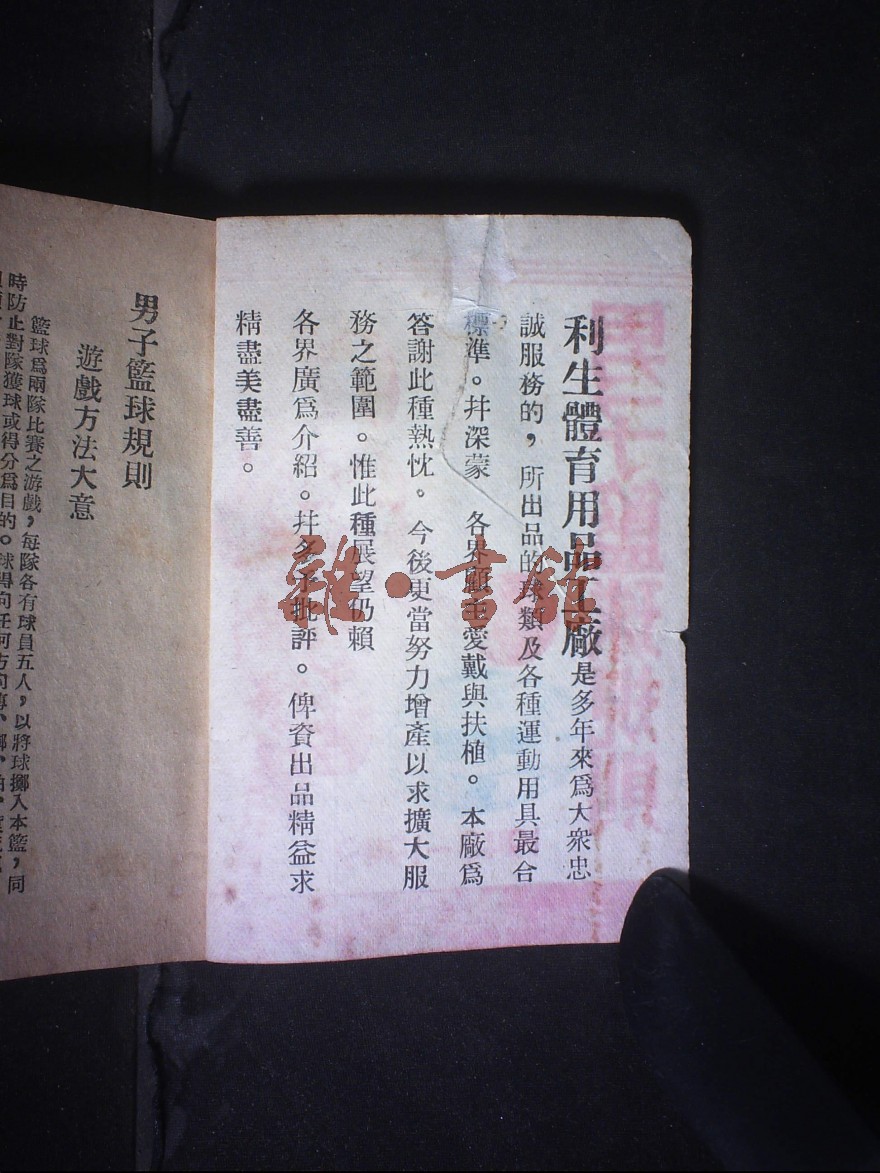 利生體育用品工廠是多年來爲大衆忠
誠服務的，所出品的球類及各種運動用具最合
標準。幷深蒙　各界顧主愛戴與扶植。本廠爲
答謝此種熱忱。今後更當努力增產以求擴大服
務之範圍。惟此種展望仍賴
各界廣爲介紹。幷多予批評。俾資出品精益求
精盡美盡善。
男子籃球規則
遊戲方法大意
籃球爲兩隊比賽之游戲，每隊各有球員五人，以將球擲入本籃，同
時防止對隊獲球或得分爲目的。球得向任何方向傳、擲、拍、
雜·書館